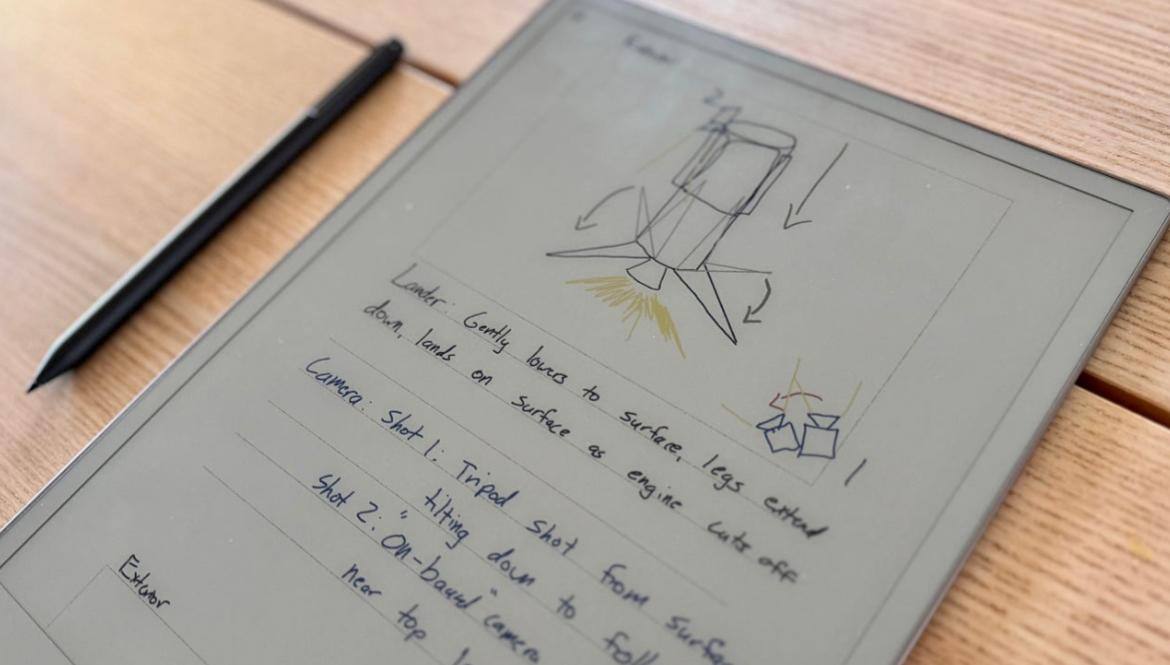 2
1
Lander: Gently lowers to surface, legs extend
down, lands on surface as engine cuts off
Camera: Shot 1: Tripod shot from
tilting down to
Shot 2: "On-board" camera
near top
Exterior